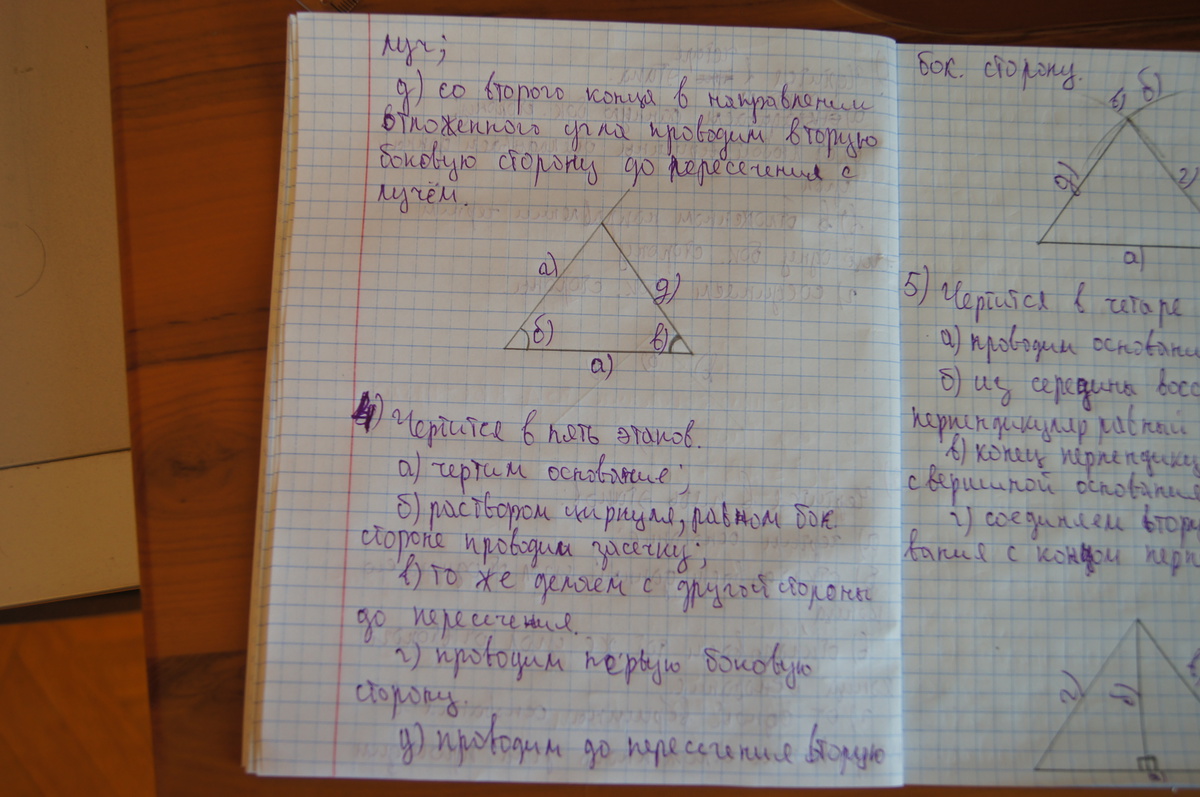 луч;
д) со второго конца в направлении
отложенного угла проводим вторую
боковую сторону до пересечения с
лучём.
г)
д)
б)
в)
а)
4) Чертится в пять этапов.
а) чертим основание;
б) раствором циркуля, равном бок.
стороне проводим засечку;
в) то же делаем с другой стороны
до пересечения.
г) проводим первую боковую
сторону.
д) проводим до пересечения вторую
бок. сторону.
в) б)
г)
а)
5) Чертится в четаре
а) проводим основани
б) из середины восс
перпендикуляр равный
в) конец перпендику
с вершиной основания
г) соединяем втору
вания с концом перп
г)
б)
в)
а)